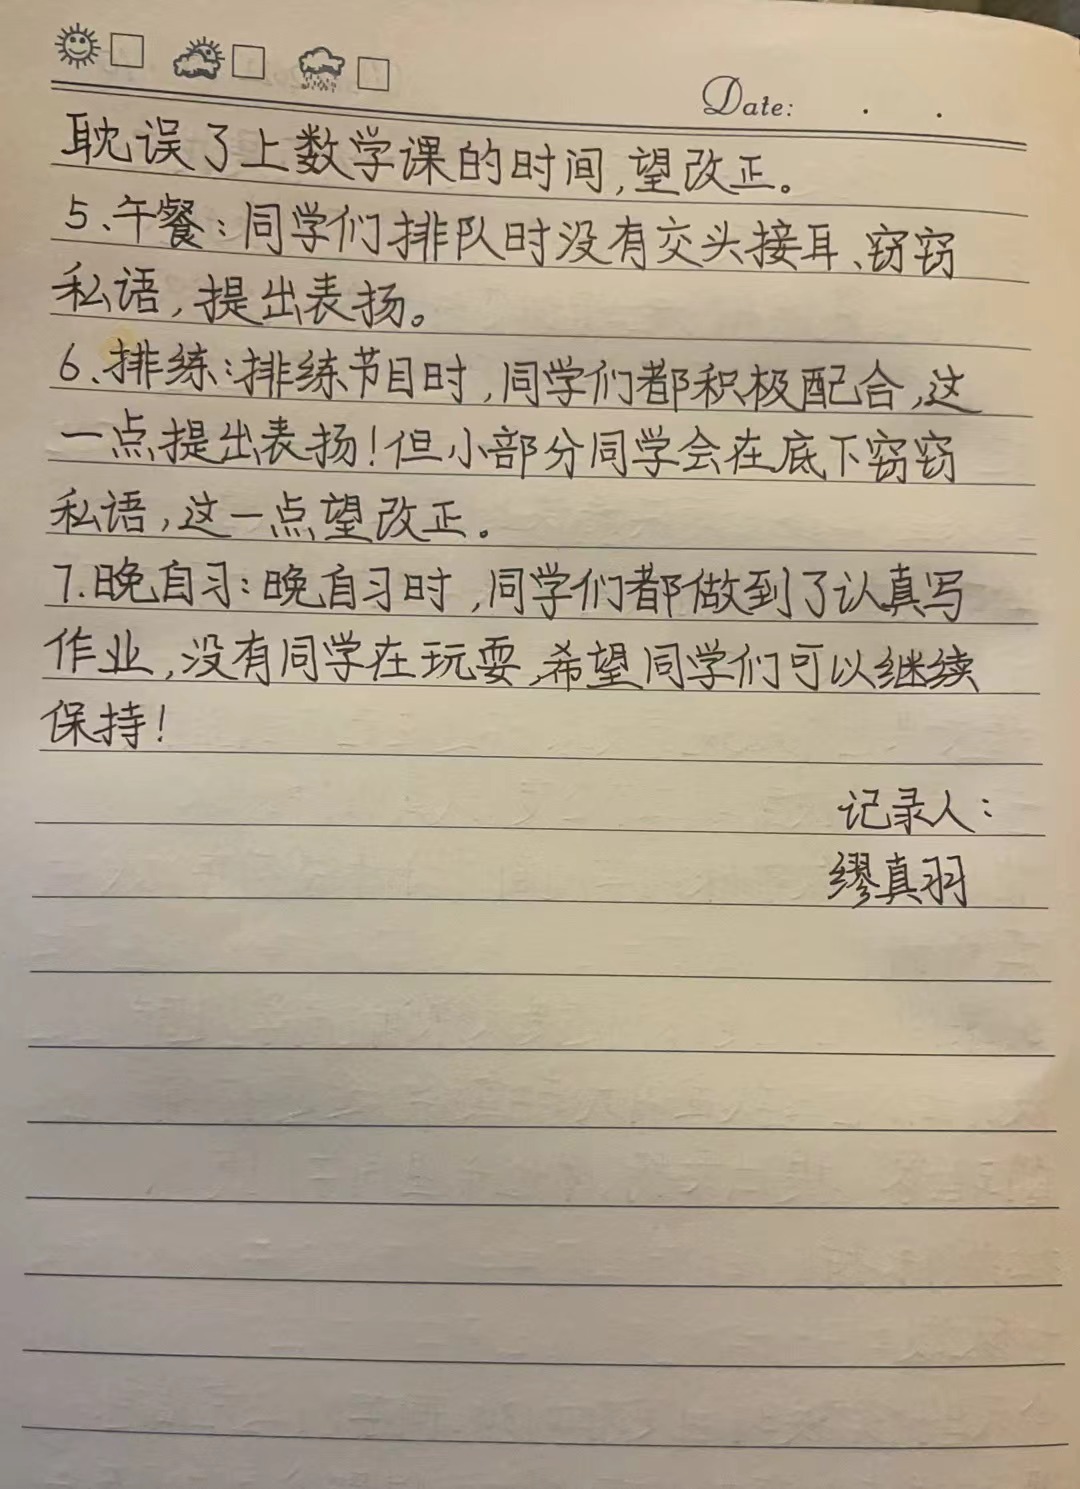 Date: . .
耽误了上数学课的时间,望改正。
5、午餐:同学们排队时没有交头接耳、窃窃
私语,提出表扬。
6、排练:排练节目时,同学们都积极配合,这
一点提出表扬!但小部分同学会在底下窃窃
私语,这一点望改正。
7.晚自习:晚自习时,同学们都做到了认真写
作业,没有同学在玩耍,希望同学们可以继续
保持!
记录人:
缪真羽